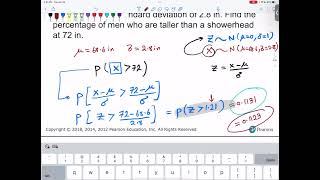 ndard deviation of 2.8 in. Find the
percentage of men who are taller than a showerhead
at 72 in.
μ=68.6in σ=2.8in
Z ~ N(μ=0, σ=1)
X ~ N(μ=68.6, σ=2.8)
P( X > 72)
Z = x-μ/σ
P[ x-μ/σ > 72-μ/σ ]
P[ Z > 72-68.6/2.8 ] = P(Z > 1.21) = 0.1131
= 0.1123
Copyright © 2018, 2014, 2012 Pearson Education, Inc. All Rights Reserved.
Pearson